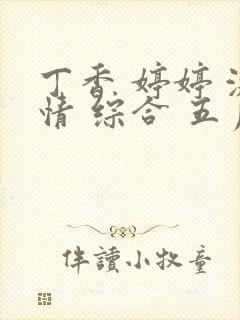 丁香 婷婷
情 综合 五
伴讀小牧童